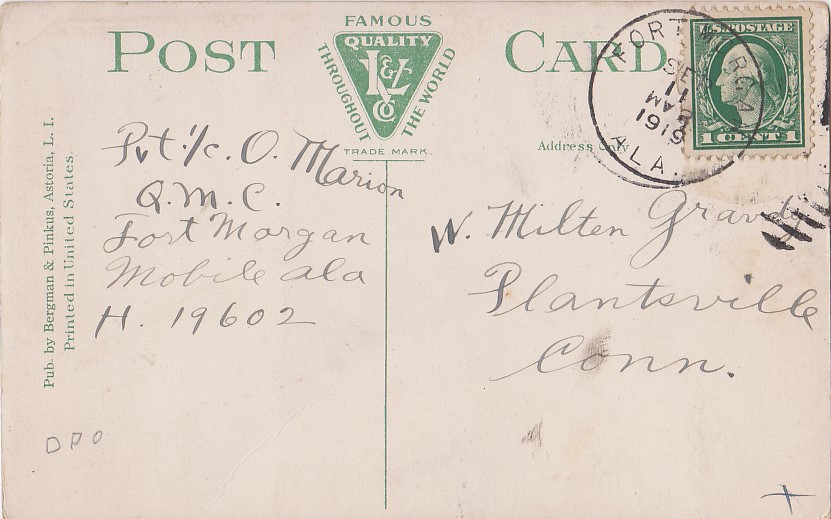 POST CARD
FAMOUS
QUALITY
L & L
Co
THROUGHOUT THE WORLD
TRADE MARK.
Address Only
U.S. POSTAGE
1 CENT 1
FORT MORGAN
SEP
11
1919
ALA.
Pvt. 1/c. O. Marion
Q. M. C.
Fort Morgan
Mobile ala
H. 19602
W. Milten
Plantsville
Conn.
Pub. by Bergman & Pinkus, Astoria, L. I.
Printed in United States.
DPO